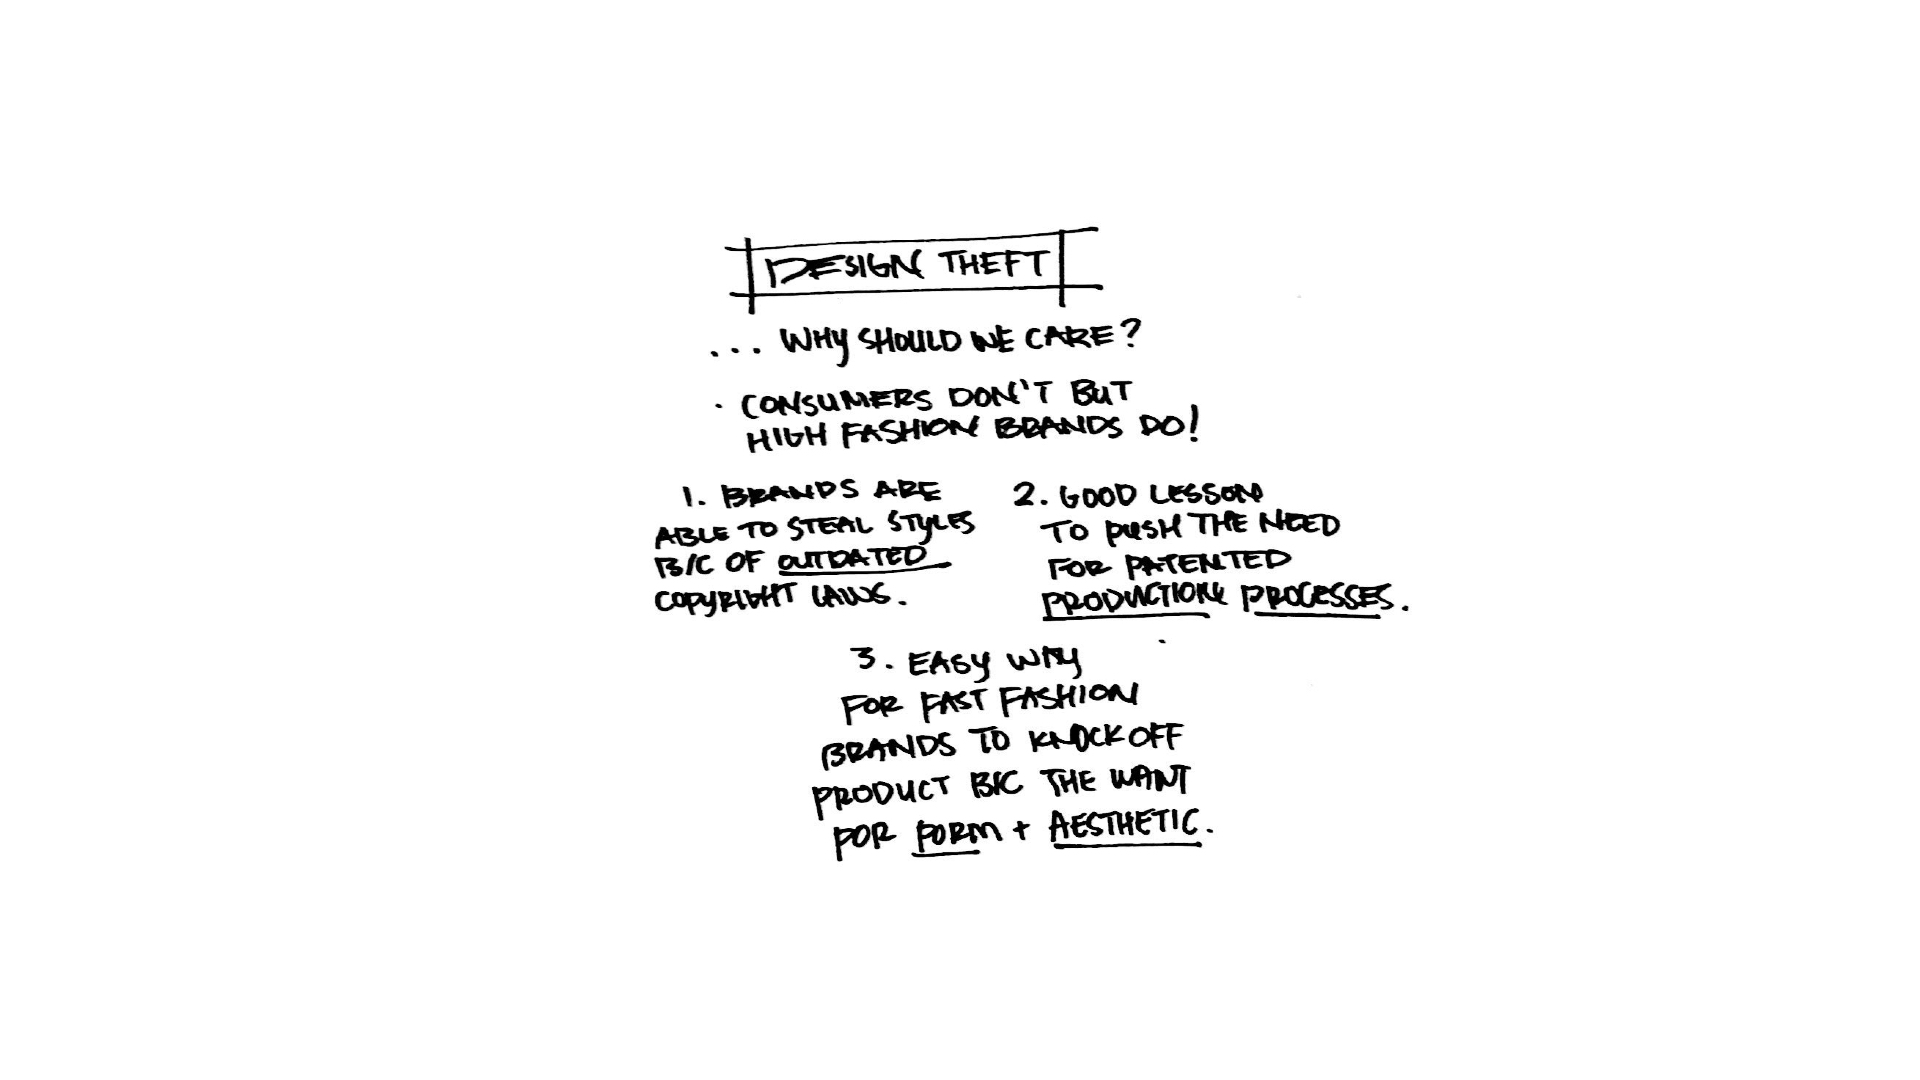 DESIGN THEFT
... WHY SHOULD WE CARE?
· CONSUMERS DON'T BUT
HIGH FASHION BRANDS DO!
1. BRANDS ARE
ABLE TO STEAL STYLES
B/C OF OUTDATED
COPYRIGHT LAWS.
2. GOOD LESSON
TO PUSH THE NEED
FOR PATENTED
PRODUCTION PROCESSES.
3. EASY WAY
FOR FAST FASHION
BRANDS TO KNOCK OFF
PRODUCT B/C THE WANT
FOR FORM + AESTHETIC.